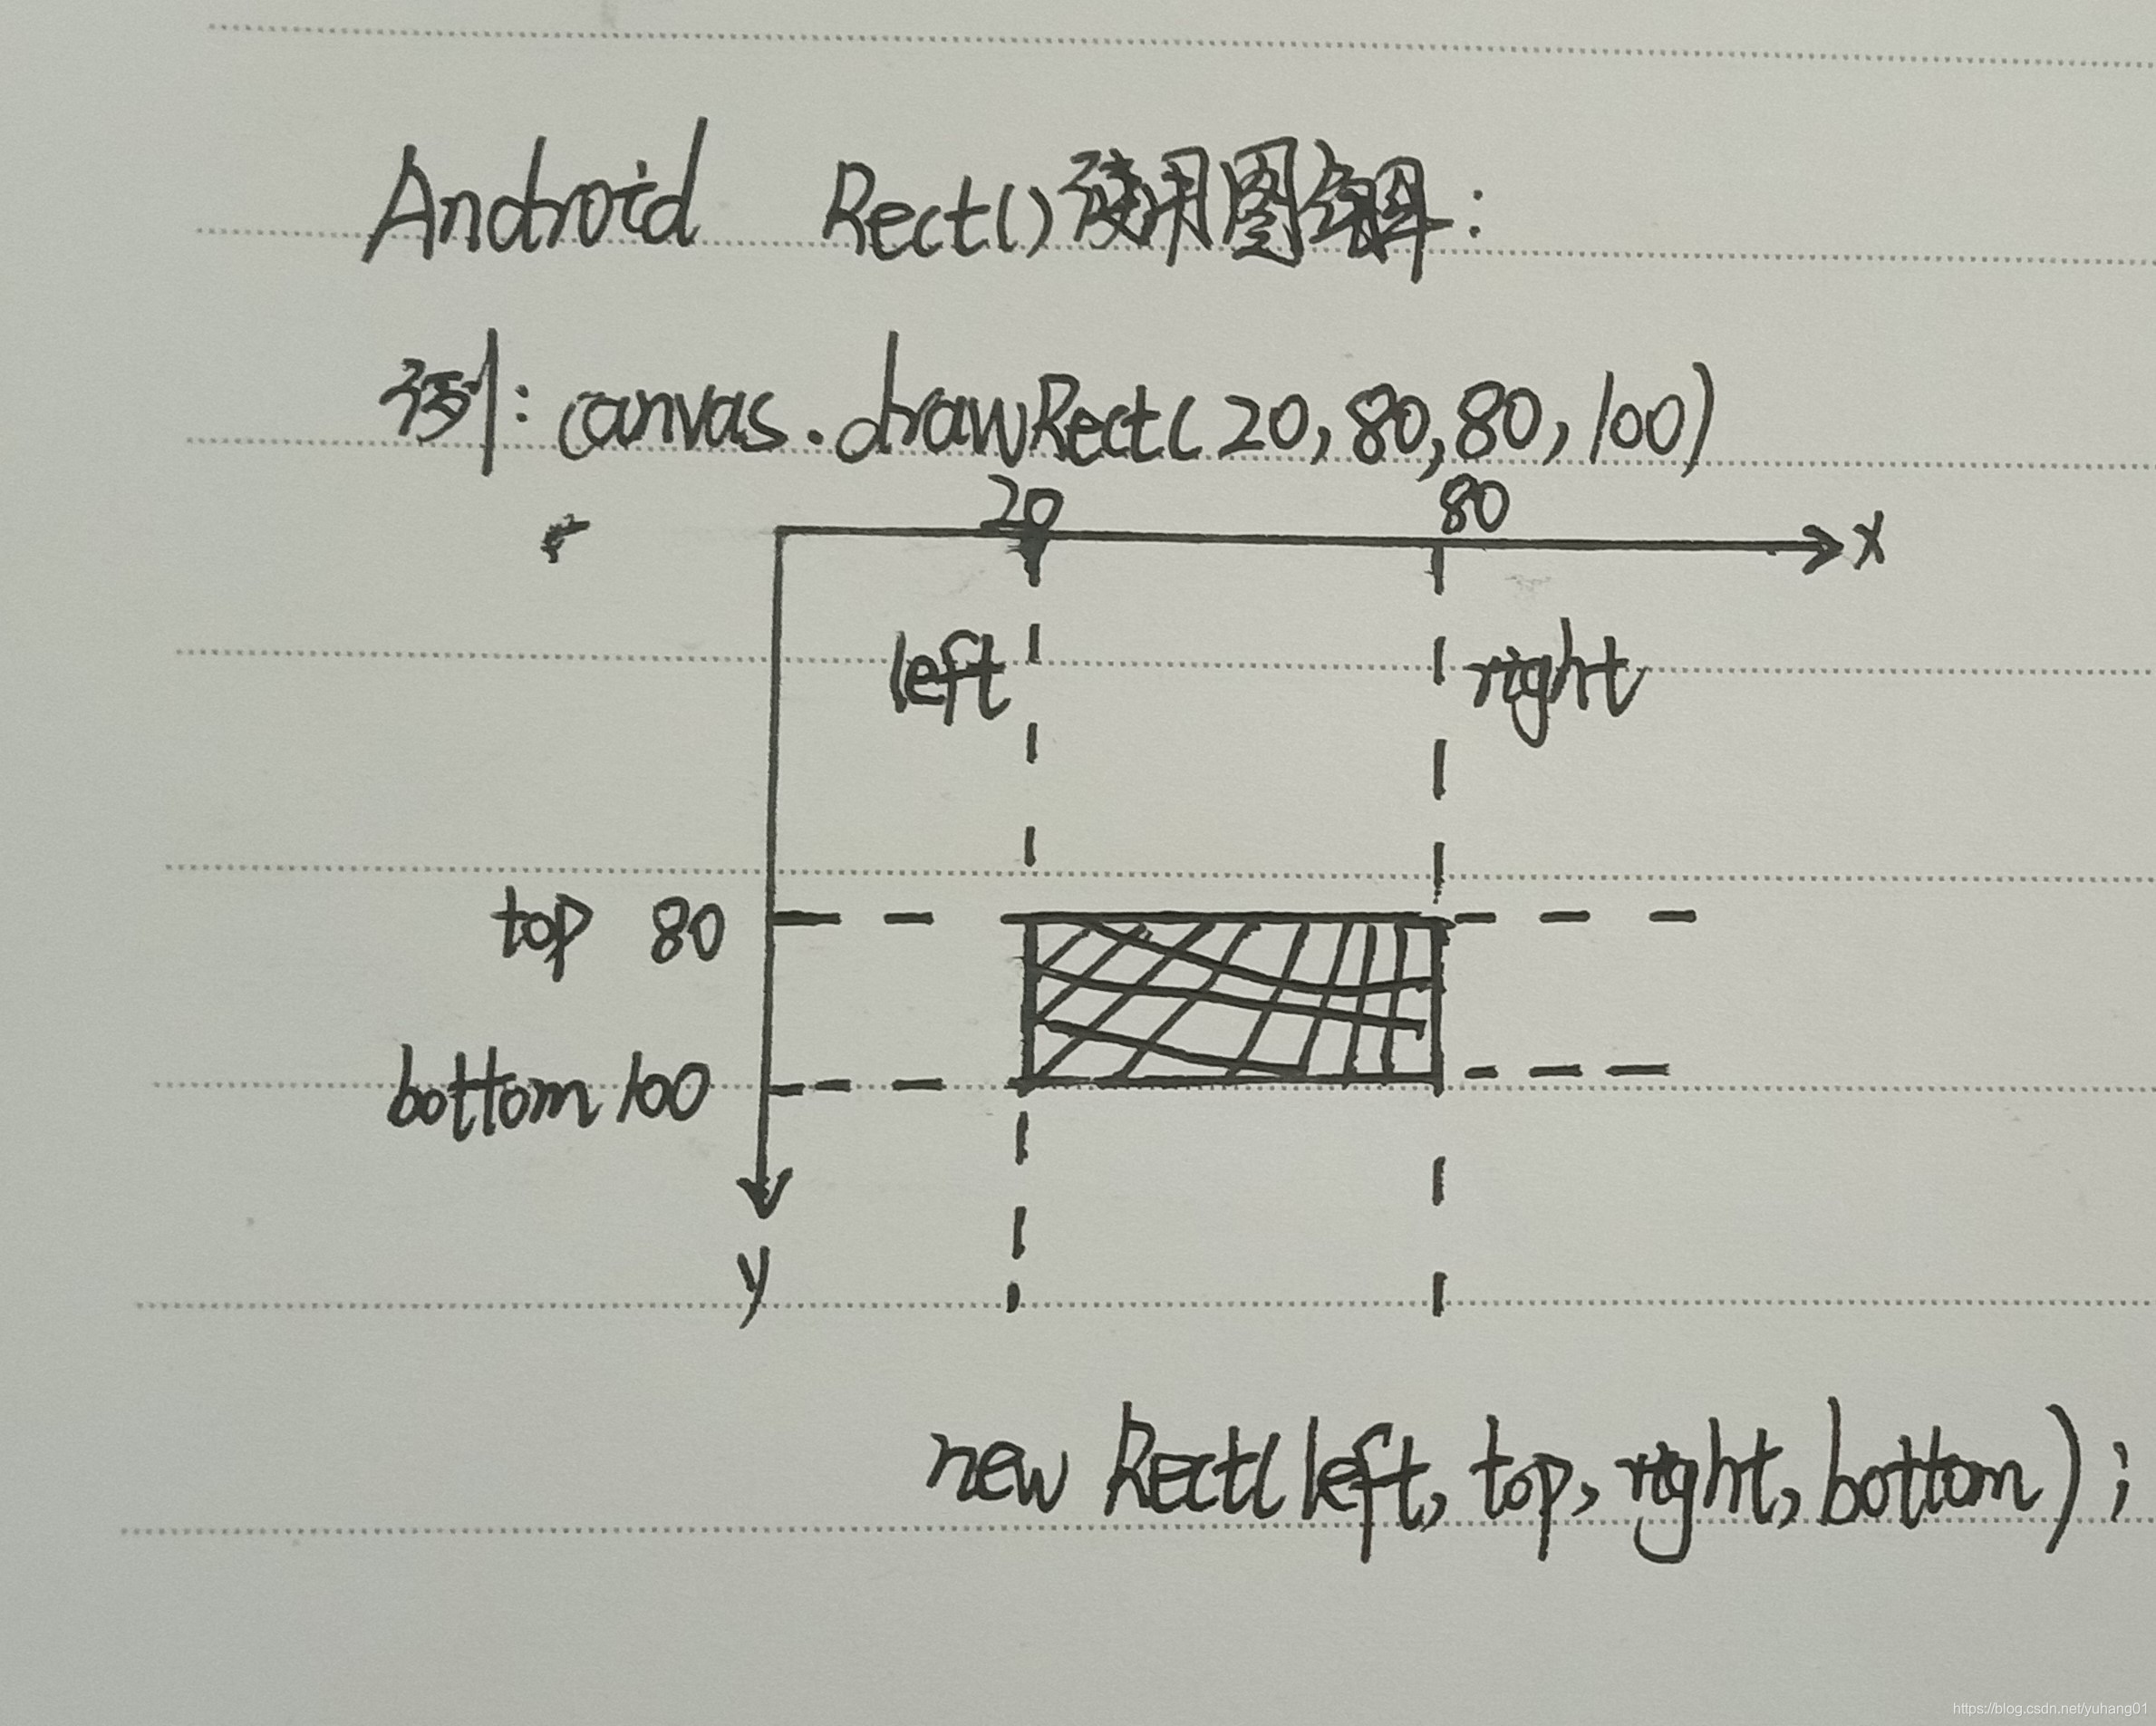 Android Rect()使用图解:
例:canvas.drawRect(20,80,80,100)
20 80
x
left right
top 80
bottom 100
y
new Rect(left, top, right, bottom);
https://blog.csdn.net/yuhang01